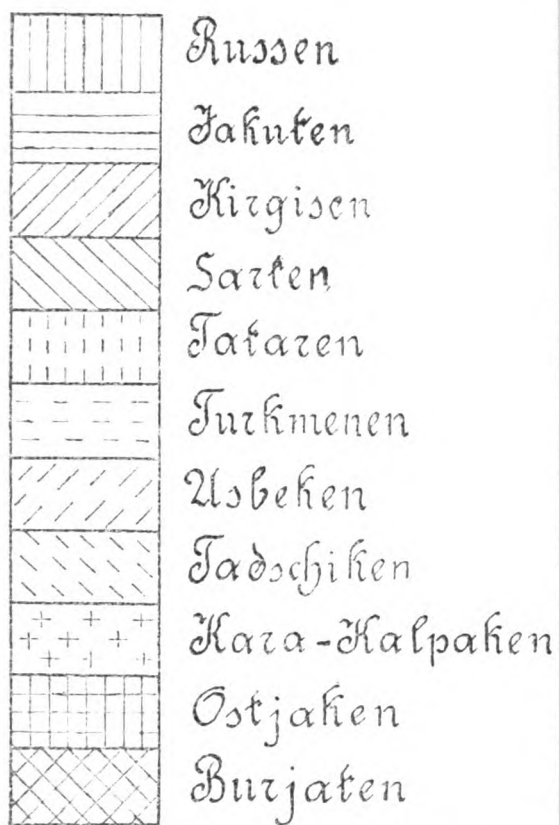 Russen
Jakuten
Kirgisen
Sarten
Tataren
Turkmenen
Usbeken
Tadschiken
Kara-Kalpaken
Ostjaken
Burjaten